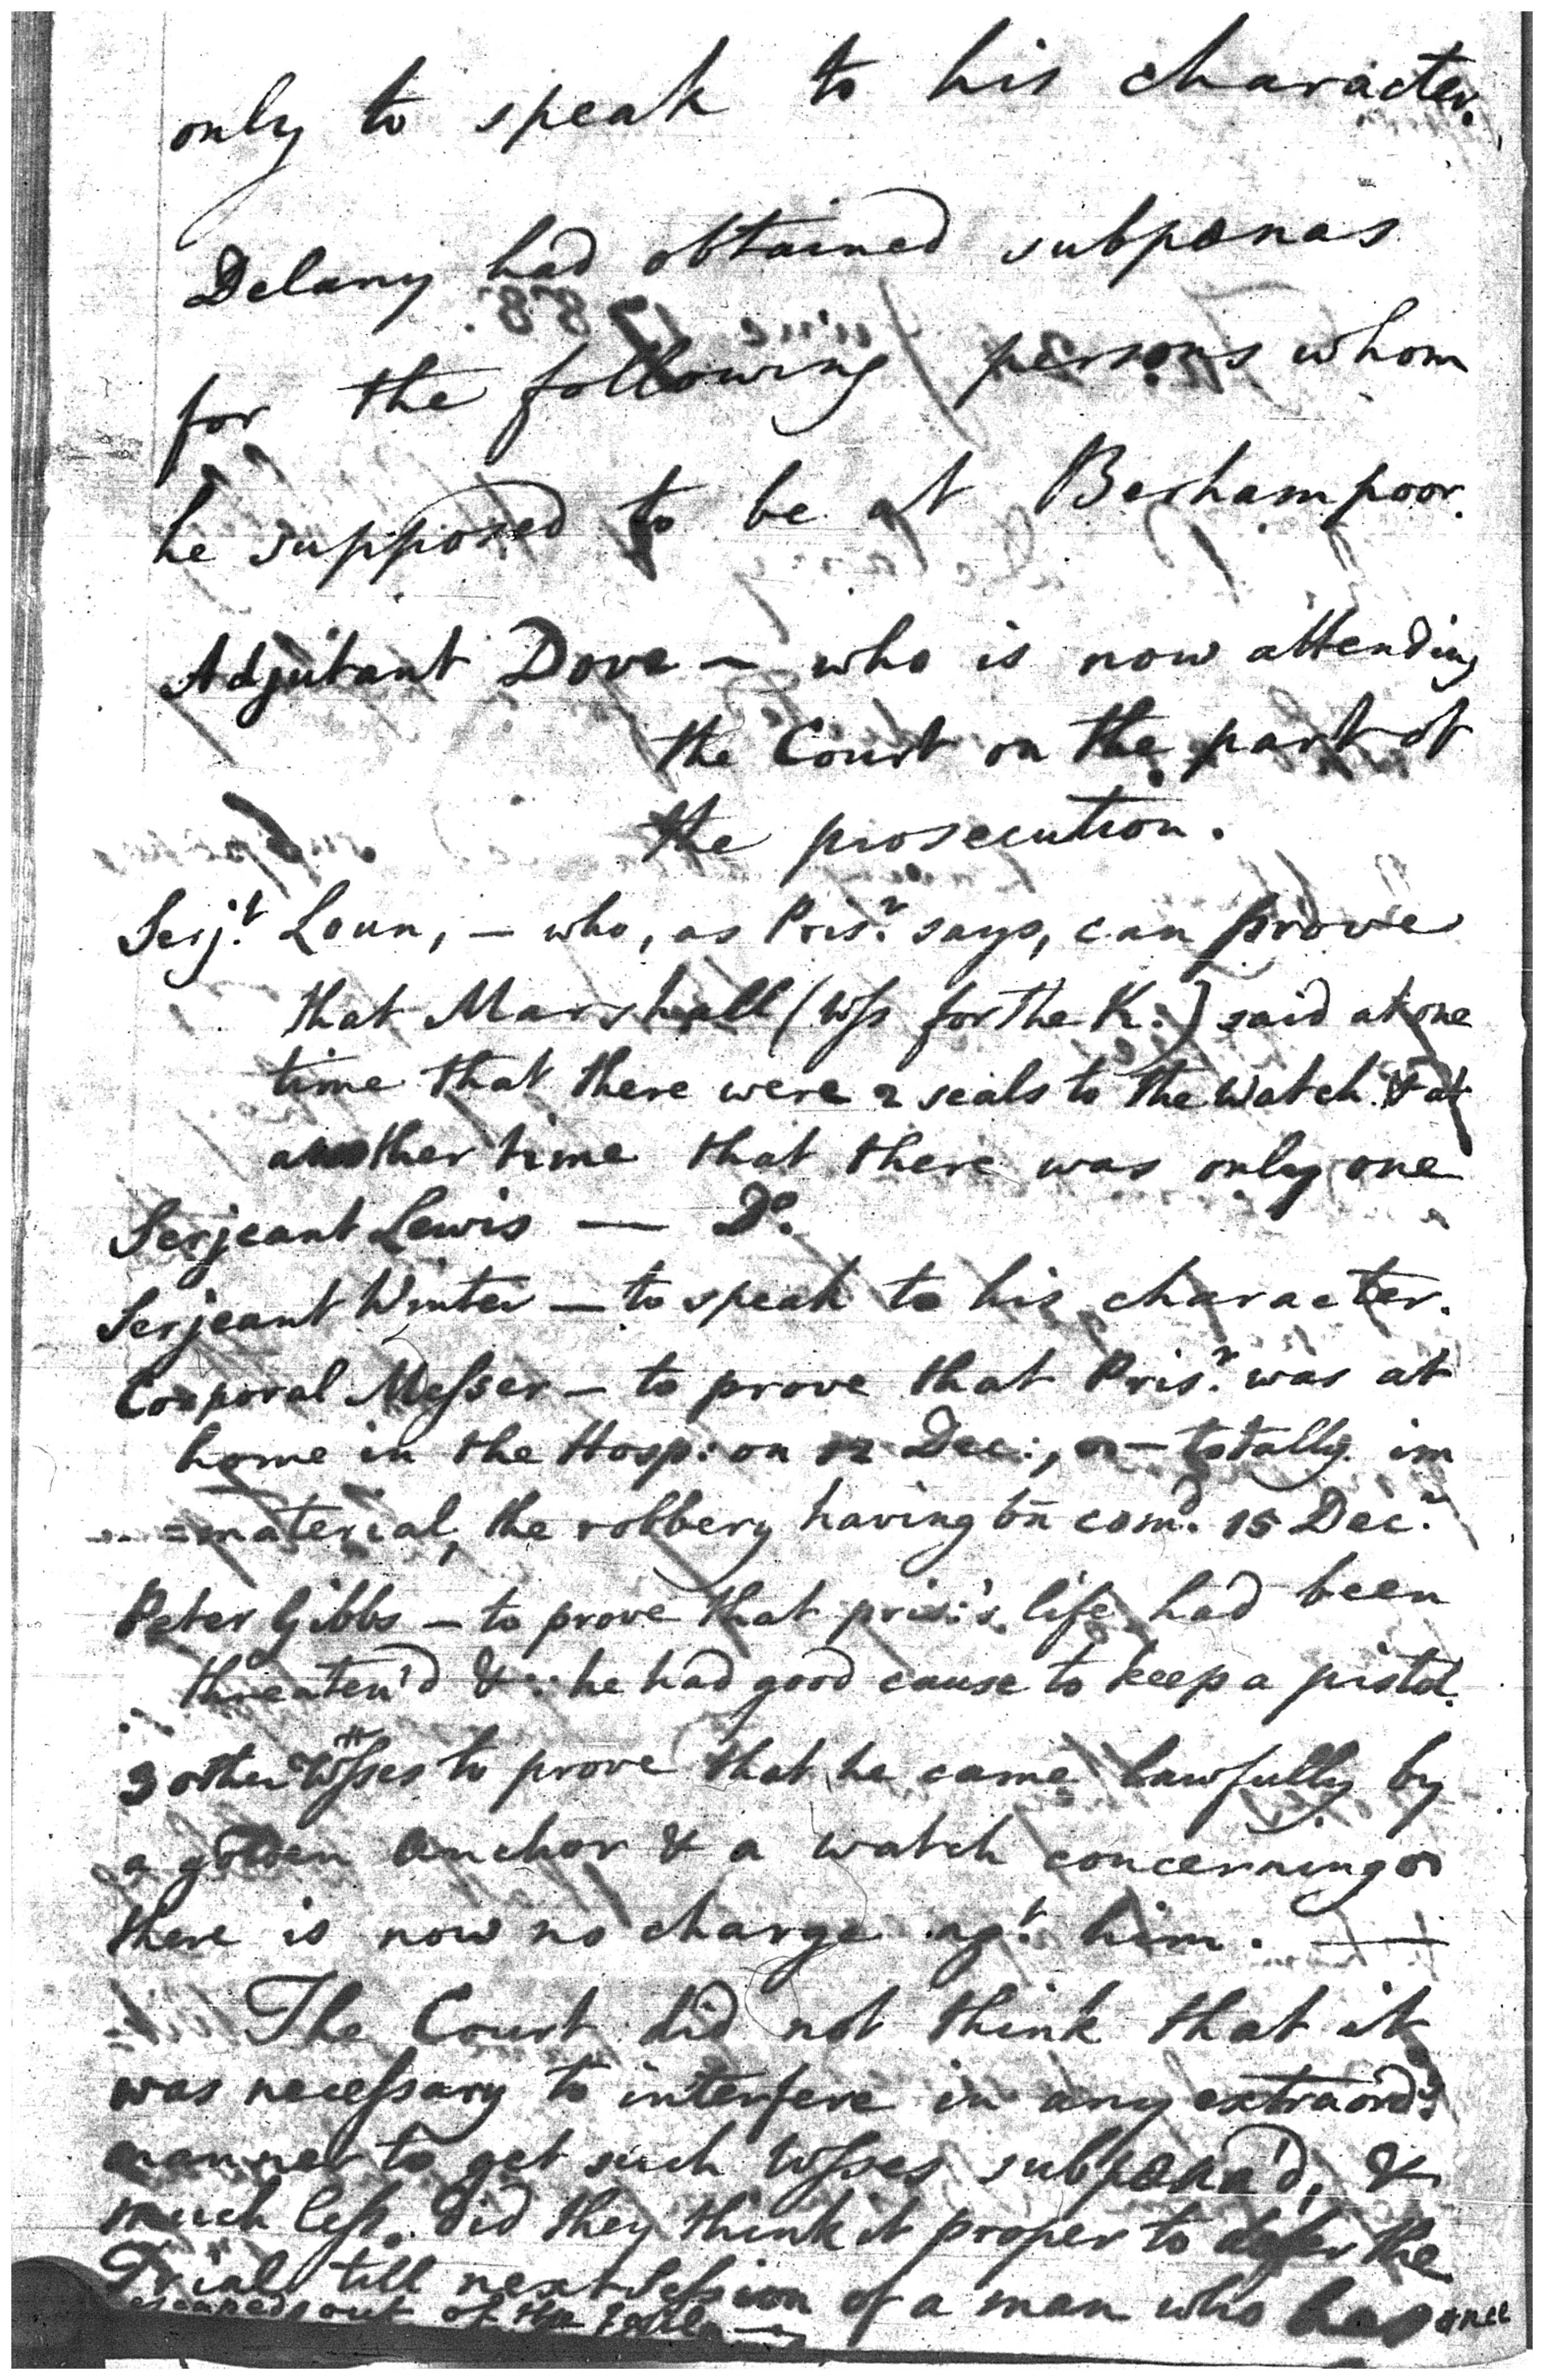 only to speak to his character.
Delany had obtained subpœnas
for the following persons whom
he supposed to be at Berhampoor.
Adjutant Dove — who is now attending
the Court on the part of
the prosecution.
Serjt. Loun, — who, as Prisr. says, can prove
that Marshall (Wss for the K:) said at one
time that there were 2 seals to the watch & at
another time that there was only one
Serjeant Lewis — Do.
Serjeant Winter — to speak to his character.
Corporal Messer — to prove that Prisr. was at
home in the Hosp: on 12 Dec:, — totally im
=material, the robbery having bn comd. 15 Decr.
Peter Gibbs — to prove that pris:'s life had been
threaten'd & he had good cause to keep a pistol.
3 other Wsses to prove that he came lawfully by
a golden anchor & a watch concerning
there is now no charge agt. him. —
The Court did not think that it
was necessary to interfere in any extraordy.
manner to get such Wsses subpœna'd, &
much less did they think it proper to defer the
Trial till next Session of a man who has once
escaped out of the